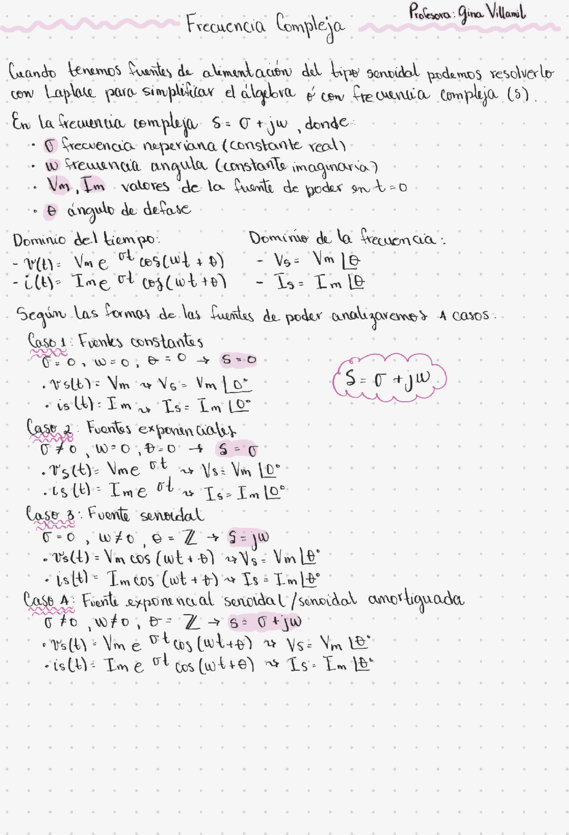 Profesora: Gina Villamil
Frecuencia Compleja
Cuando tenemos fuentes de alimentación del tipo senoidal podemos resolverlo
con Laplace para simplificar el álgebra ó con frecuencia compleja (s).
En la frecuencia compleja S = σ + jw, donde:
· σ frecuencia neperiana (constante real)
· w frecuencia angula (constante imaginaria)
· Vm, Im valores de la fuente de poder en t=0
· θ ángulo de defase
Dominio del tiempo: Dominio de la frecuencia:
- v(t) = Vm e σt cos(wt + θ) - Vs = Vm∠θ
- i(t) = Im e σt cos(wt + θ) - Is = Im∠θ
Según las formas de las fuentes de poder analizaremos 4 casos:
Caso 1: Fuentes constantes
σ=0, w=0, θ=0 → S=0
S = σ + jw
· vs(t) = Vm ↝ Vs = Vm∠0°
· is(t) = Im ↝ Is = Im∠0°
Caso 2: Fuentes exponenciales
σ≠0, w=0, θ=0 → S=σ
· vs(t) = Vm e σt ↝ Vs = Vm∠0°
· is(t) = Im e σt ↝ Is = Im∠0°
Caso 3: Fuente senoidal
σ=0, w≠0, θ=ℤ → S=jw
· vs(t) = Vm cos (wt+θ) ↝ Vs = Vm∠θ°
· is(t) = Im cos (wt+θ) ↝ Is = Im∠θ°
Caso 4: Fuente exponencial senoidal/senoidal amortiguada
σ≠0, w≠0, θ=ℤ → S=σ+jw
· vs(t) = Vm e σt cos (wt+θ) ↝ Vs = Vm∠θ°
· is(t) = Im e σt cos (wt+θ) ↝ Is = Im∠θ°